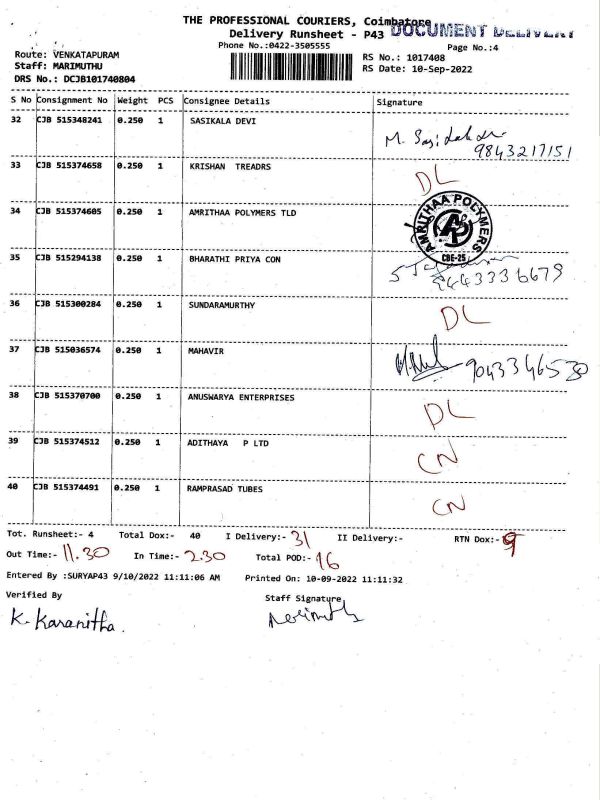 THE PROFESSIONAL COURIERS, Coimbatore
DOCUMENT DELIVERY
Delivery Runsheet - P43
Phone No.:0422-3505555
Page No.:4
Route: VENKATAPURAM
Staff: MARIMUTHU
DRS No.: DCJB101740804
RS No.: 1017408
RS Date: 10-Sep-2022
S No Consignment No Weight PCS Consignee Details Signature
32 CJB 515348241 0.250 1 SASIKALA DEVI
9843217151
33 CJB 515374658 0.250 1 KRISHAN TREADRS DL
34 CJB 515374605 0.250 1 AMRITHAA POLYMERS TLD
AMRITHAA POLYMERS
CBE-25
35 CJB 515294138 0.250 1 BHARATHI PRIYA CON
36 CJB 515300284 0.250 1 SUNDARAMURTHY DL
37 CJB 515036574 0.250 1 MAHAVIR 9043346530
38 CJB 515370700 0.250 1 ANUSWARYA ENTERPRISES DL
39 CJB 515374512 0.250 1 ADITHAYA P LTD CN
40 CJB 515374491 0.250 1 RAMPRASAD TUBES CN
Tot. Runsheet:- 4 Total Dox:- 40 I Delivery:- 31 II Delivery:- RTN Dox:- 9
Out Time:- 11.30 In Time:- 2.30 Total POD:- 16
Entered By :SURYAP43 9/10/2022 11:11:06 AM Printed On: 10-09-2022 11:11:32
Verified By Staff Signature
K. Karanitha.